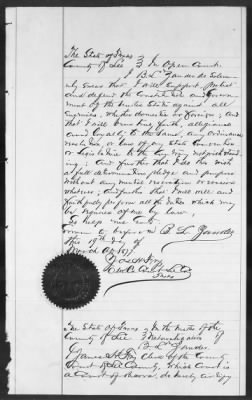 The State of Texas
County of Lee } In Open Court.
I B. L. Zander do Solem-
nly Swear that I will Support, Protect
and defend the Constitution and Govern-
ment of the United States against all
Enemies, whether domestic or Foreign; and
that I will bear true faith, allegiance
and loyalty to the Same, any ordinance,
resolution or law of any State Convention
or Legislature to the Contrary notwithstand-
ing; and further that I do this with
a full determination pledge and purpose
without any mental reservation or evasion
whatever; and further that I will well and
faithfully perform all the duties which may
be required of me by law,
So help me God
Sworn to before me B. L. Zander
this 19th day of
March
The State of Texas } In the Matter of the
County of Lee } Naturalization of
B. L. Zander
I James Clerk of the County
Court of Lee County, which Court is
a Court of Record, do hereby certify